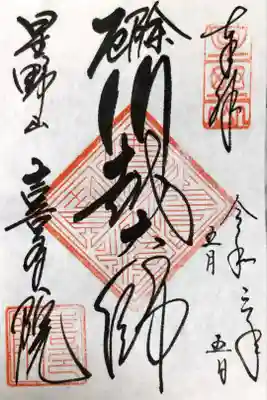 奉拝
令和三年
五月
五日
厄除
川越大師
星野山
喜多院